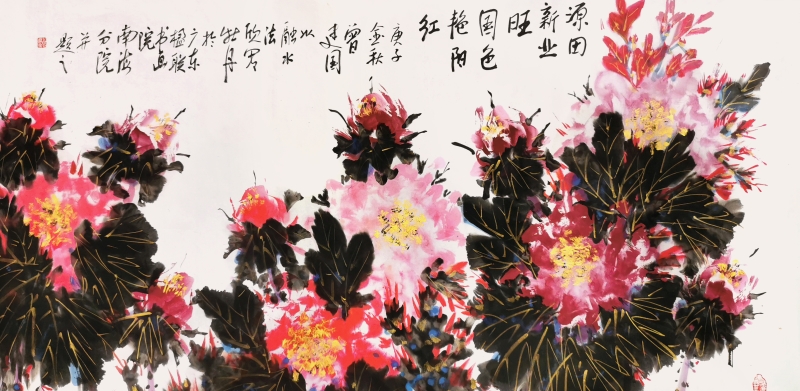 源田
新业
旺
国色
艳阳
红
庚子
金秋
曾
建国
以
融水
法
欣写
牡丹
于
广东
楹联
书画
院
南海
分院
并
题之